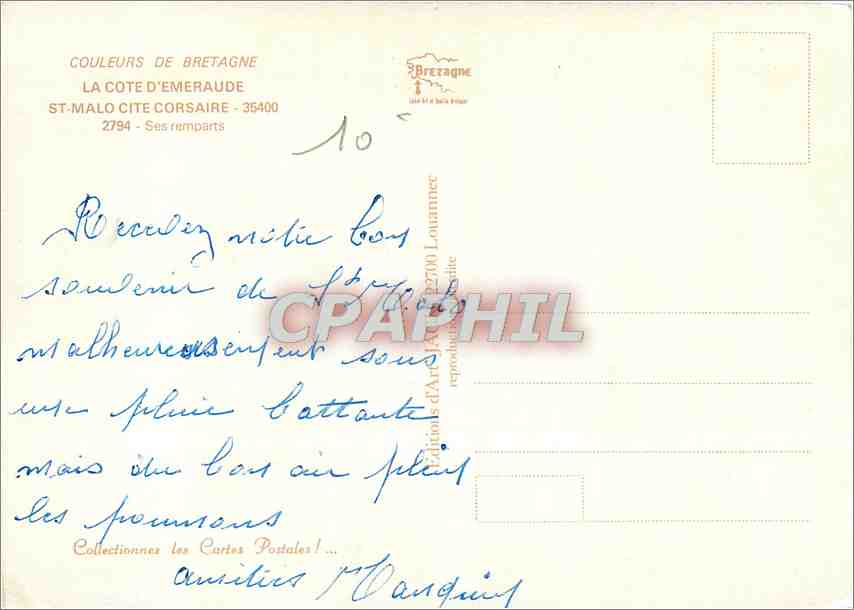 COULEURS DE BRETAGNE
LA COTE D'EMERAUDE
ST-MALO CITE CORSAIRE - 35400
2794 - Ses remparts
Brezagne
10
Recevez notre bon
souvenir de St Malo
malheureusement sous
une pluie battante
mais du bon air plein
les poumons
amitiés
Collectionnez les Cartes Postales ! ...
Editions d'Art JA 22700 Louannec
reproduction interdite
CPAPHIL